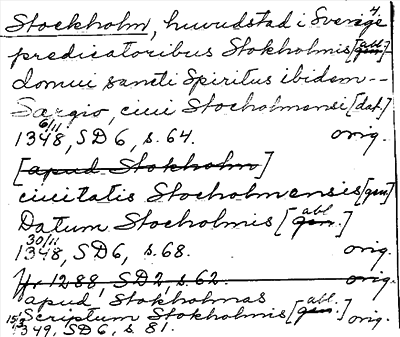 Stockholm, huvudstad i Sverige 4.
predicatoribus Stokholmis [abl.
domui sancti Spiritus ibidem --
Sargio, ciui Stocholmensi [dat.]
6/11
1348, SD 6, s. 64. orig.
[apud Stokholm]
ciuitatis Stocholmensis [gen]
Datum Stocholmis [gen. abl.]
30/11
1348, SD6, s. 68. orig.
Yr 1288, SD2, s. 62. orig.
apud Stokholmas
Scriptum Stokholmis [gen. abl.]
15/3 1349, SD 6, s 81. orig.